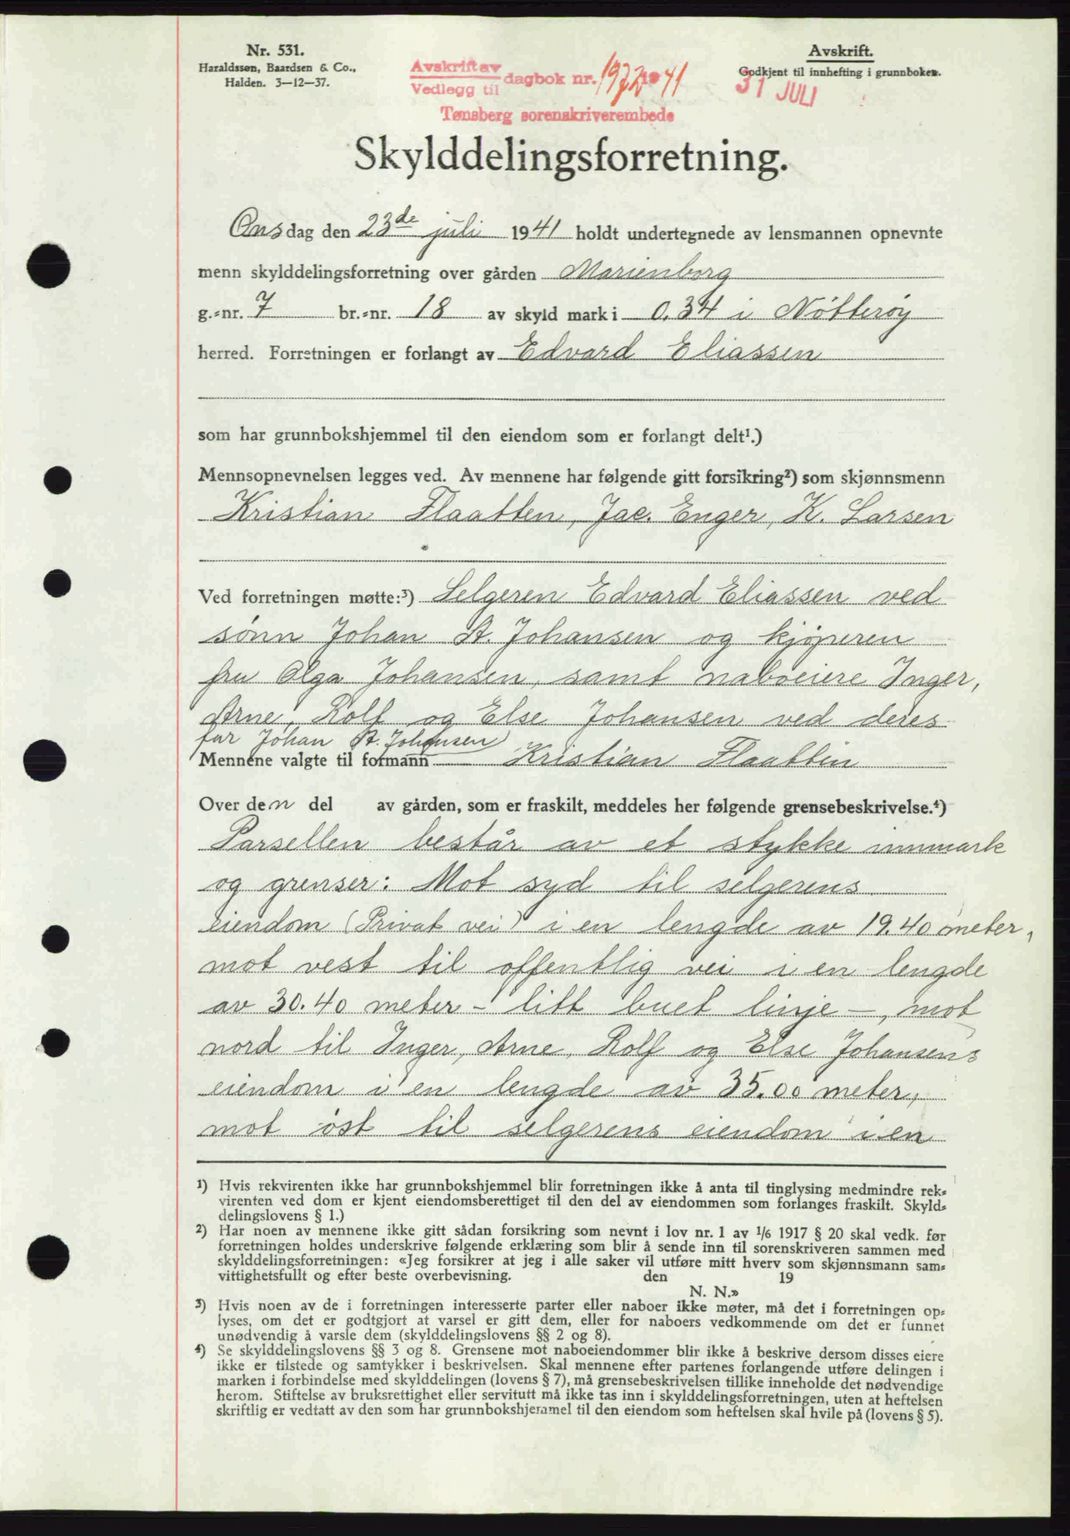 Nr. 531.
Haraldssen, Baardsen & Co.,
Halden. 3—12—37.
Avskrift av
Vedlegg til dagbok nr. 1972 1941
Tønsberg sorenskriverembede
Avskrift.
Godkjent til innhefting i grunnboken.
31 JULI
Skylddelingsforretning.
Onsdag den 23de juli 1941 holdt undertegnede av lensmannen opnevnte
menn skylddelingsforretning over gården Marienborg
g.=nr. 7 br.=nr. 18 av skyld mark i 0.34 i Nötteröy
herred. Forretningen er forlangt av Edvard Eliassen
som har grunnbokshjemmel til den eiendom som er forlangt delt¹.)
Mennsopnevnelsen legges ved. Av mennene har følgende gitt forsikring²) som skjønnsmenn
Kristian Flaatten, Jac. Enger, K. Larsen
Ved forretningen møtte:³) Selgeren Edvard Eliassen ved
sönn Johan A. Johansen og kjöperen
fru Olga Johansen, samt naboeiere Inger,
Arne, Rolf og Else Johansen ved deres
far Johan A. Johansen
Mennene valgte til formann Kristian Flaatten
Over den del av gården, som er fraskilt, meddeles her følgende grensebeskrivelse.⁴)
Parsellen består av et stykke innmark
og grenser: Mot syd til selgerens
eiendom (Privat vei) i en lengde av 19.40 meter,
mot vest til offentlig vei i en lengde
av 30.40 meter – litt buet linje –, mot
nord til Inger, Arne, Rolf og Else Johansens
eiendom i en lengde av 35.00 meter,
mot öst til selgerens eiendom i en
¹) Hvis rekvirenten ikke har grunnbokshjemmel blir forretningen ikke å anta til tinglysing medmindre rek=
virenten ved dom er kjent eiendomsberettiget til den del av eiendommen som forlanges fraskilt. Skyld=
delingslovens § 1.)
²) Har noen av mennene ikke gitt sådan forsikring som nevnt i lov nr. 1 av 1/6 1917 § 20 skal vedk. før
forretningen holdes underskrive følgende erklæring som blir å sende inn til sorenskriveren sammen med
skylddelingsforretningen: «Jeg forsikrer at jeg i alle saker vil utføre mitt hverv som skjønnsmann sam=
vittighetsfullt og efter beste overbevisning. den 19
N. N.»
³) Hvis noen av de i forretningen interesserte parter eller naboer ikke møter, må det i forretningen op=
lyses, om det er godtgjort at varsel er gitt dem, eller for naboers vedkommende om det er funnet
unødvendig å varsle dem (skylddelingslovens §§ 2 og 8).
⁴) Se skylddelingslovens §§ 3 og 8. Grensene mot naboeiendommer blir ikke å beskrive dersom disses eiere
ikke er tilstede og samtykker i beskrivelsen. Skal mennene efter partenes forlangende utføre delingen i
marken i forbindelse med skylddelingen (lovens § 7), må grensebeskrivelsen tillike inneholde det nødvendige
herom. Stiftelse av bruksrettighet eller servitutt må ikke tas inn i skylddelingsforretningen, uten at heftelsen
skriftlig er vedtatt av den som har grunnbokshjemmel til den eiendom som heftelsen skal hvile på (lovens § 5).